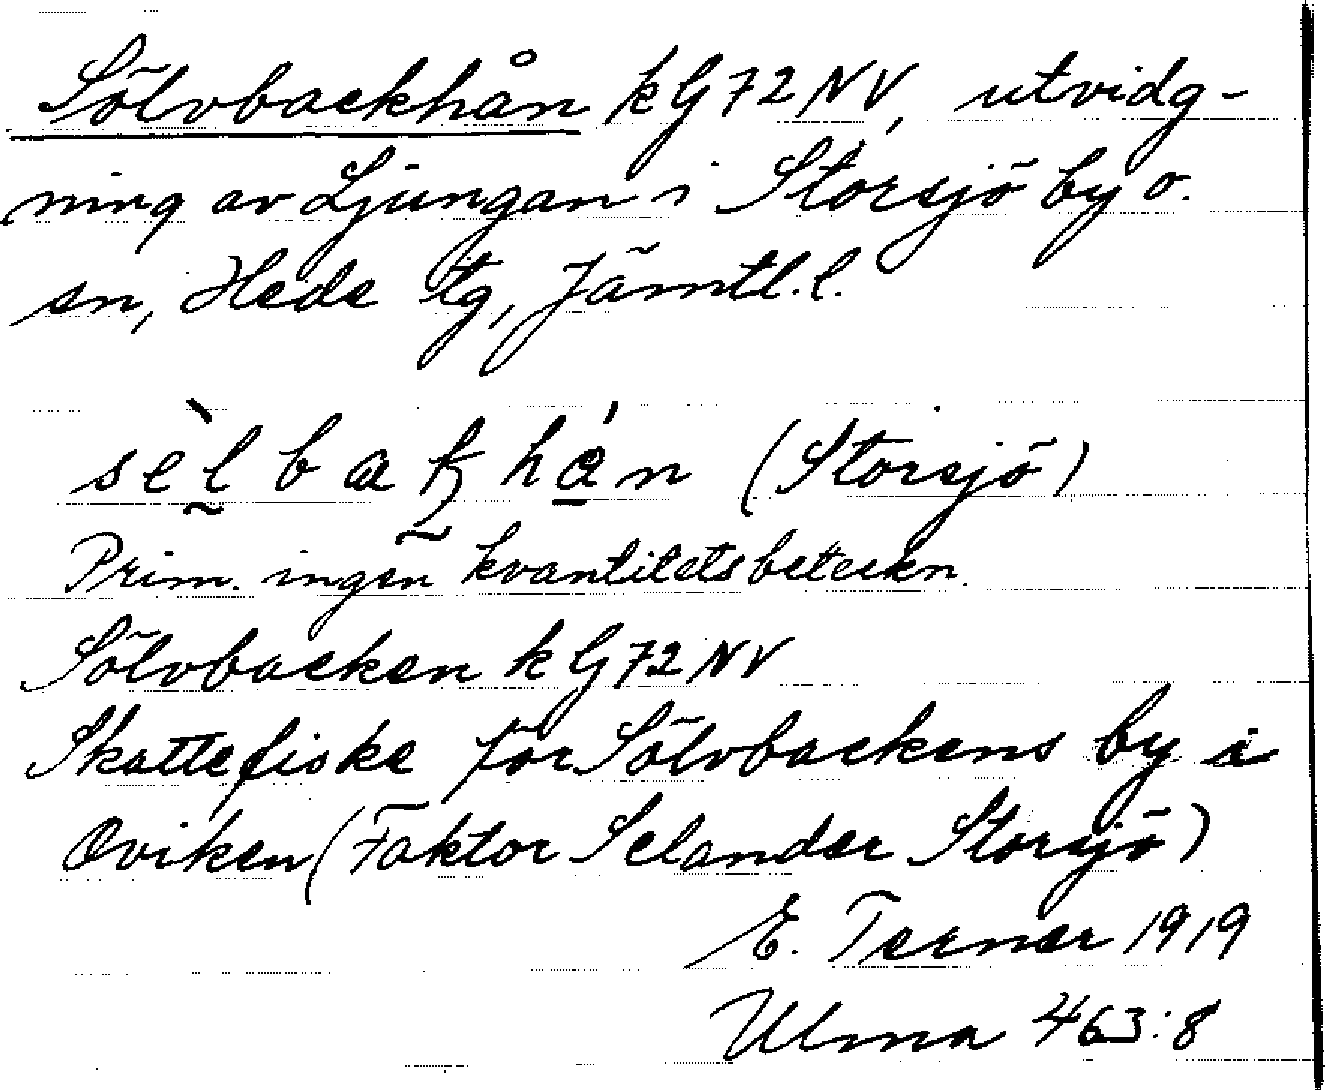 Sölvbackhån k G 72 NV, utvidg-
ning av Ljungan i Storsjö by o.
sn, Hede tg, Jämtl. l.
sèlbakhán (Storsjö)
Prim. ingen kvantitetsbeteckn.
Sölvbacken k G 72 NV
Skattefiske för Sölvbackens by i
Oviken (Faktor Selander Storsjö)
E. Terner 1919
Ulma 463:8